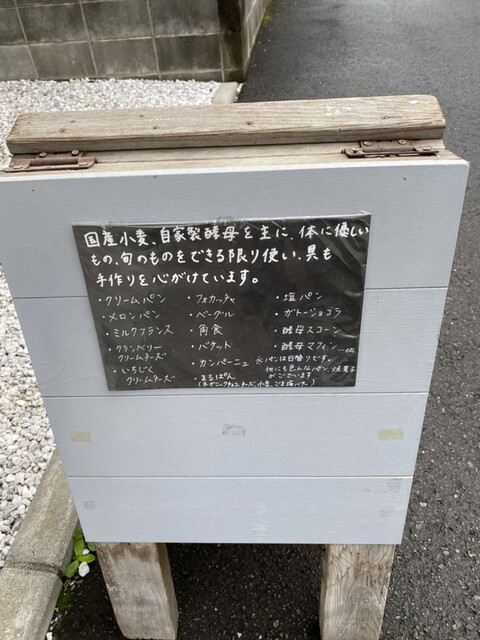 国産小麦、自家製酵母を主に、体に優しい
もの、旬のものをできる限り使い、具も
手作りを心がけています。
・クリームパン
・メロンパン
・ミルクフランス
・クランベリー
クリームチーズ
・いちじく
クリームチーズ
・フォカッチャ
・ベーグル
・角食
・バゲット
・カンパーニュ
・まるぱん
・塩パン
・ガトーショコラ
・酵母スコーン
・酵母マフィン…etc
※パンは日替りです。
他にも色んなパン、焼菓子
がございます